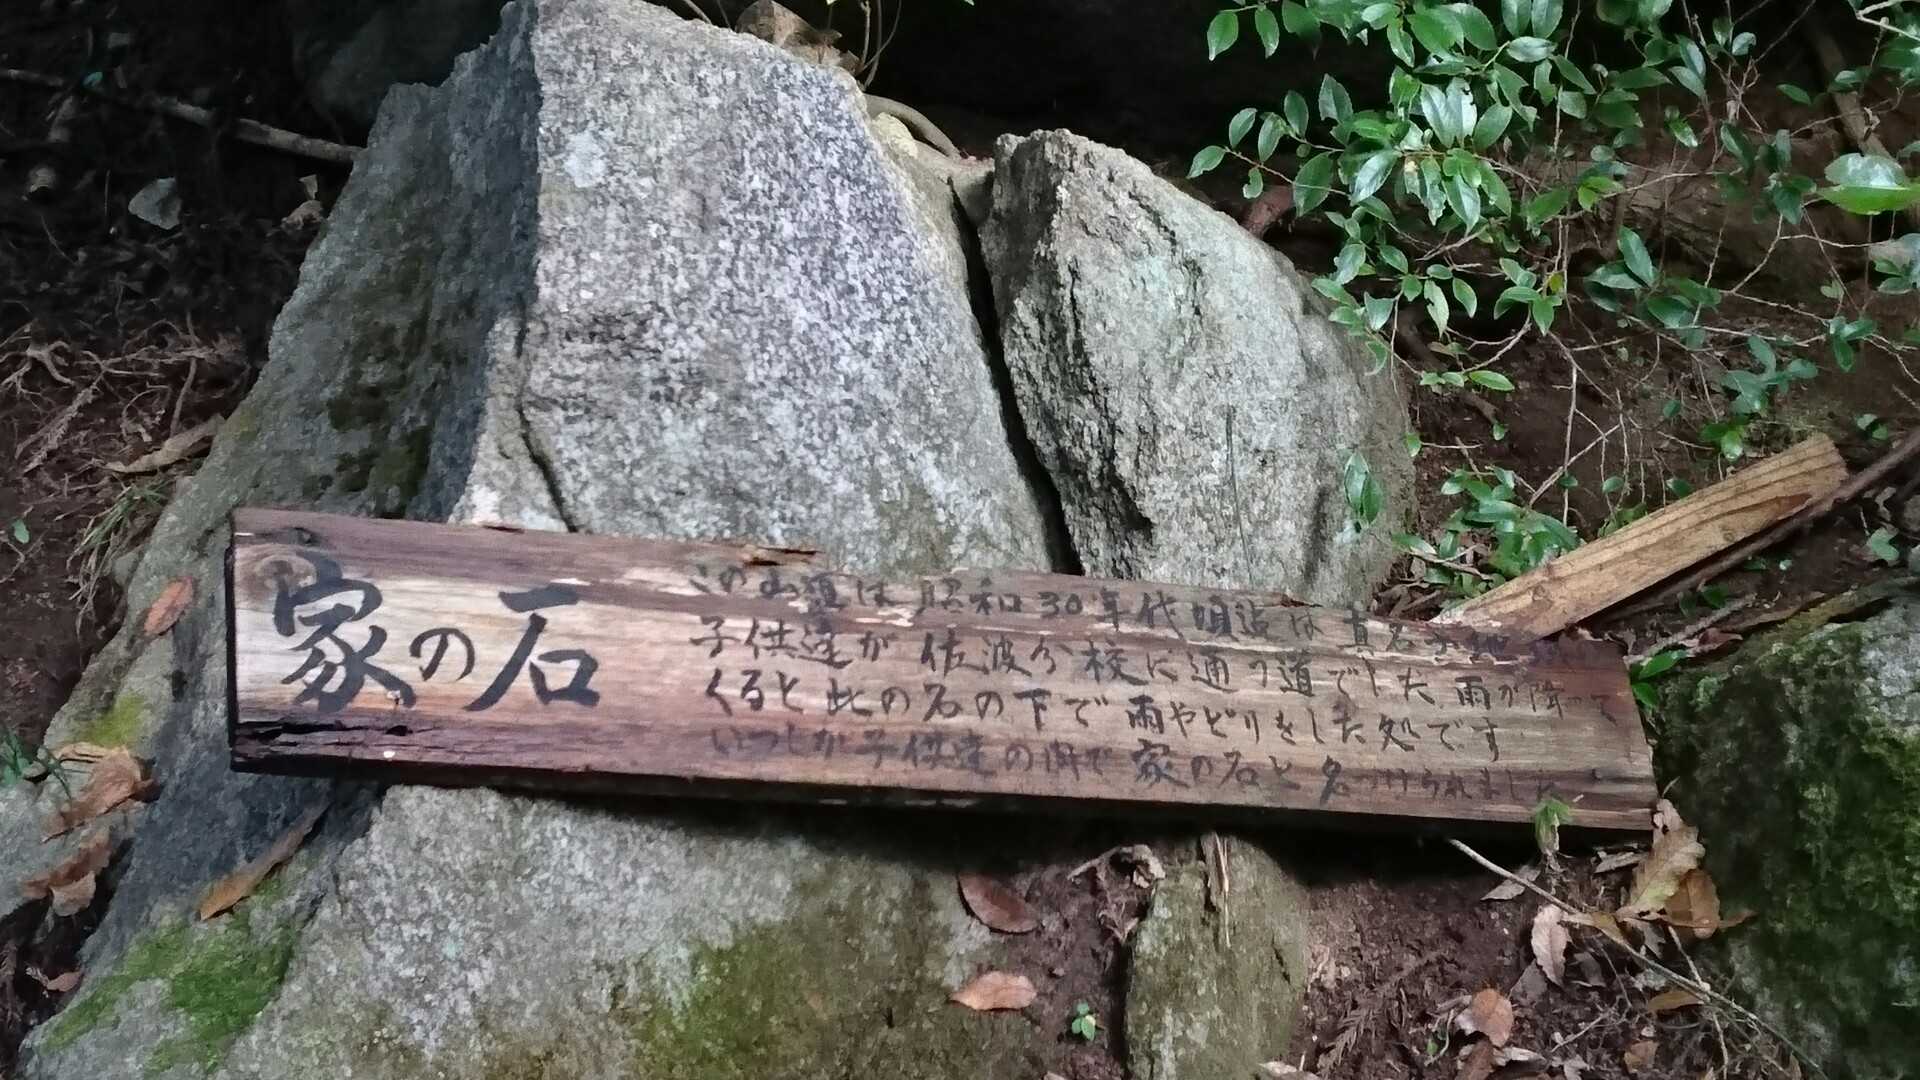 家の石
この山道は昭和30年代頃迄は真名子地
子供達が佐波分校に通う道でした雨が降って
くると此の石の下で雨やどりをした処です
いつしか子供達の間で家の石と名づけられました